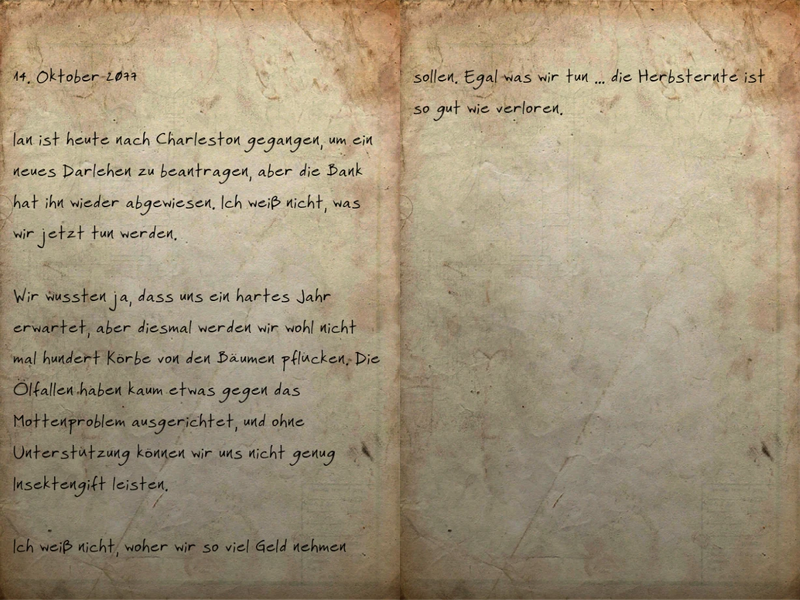 14. Oktober 2077
Ian ist heute nach Charleston gegangen, um ein
neues Darlehen zu beantragen, aber die Bank
hat ihn wieder abgewiesen. Ich weiß nicht, was
wir jetzt tun werden.
Wir wussten ja, dass uns ein hartes Jahr
erwartet, aber diesmal werden wir wohl nicht
mal hundert Körbe von den Bäumen pflücken. Die
Ölfallen haben kaum etwas gegen das
Mottenproblem ausgerichtet, und ohne
Unterstützung können wir uns nicht genug
Insektengift leisten.
Ich weiß nicht, woher wir so viel Geld nehmen
sollen. Egal was wir tun ... die Herbsternte ist
so gut wie verloren.